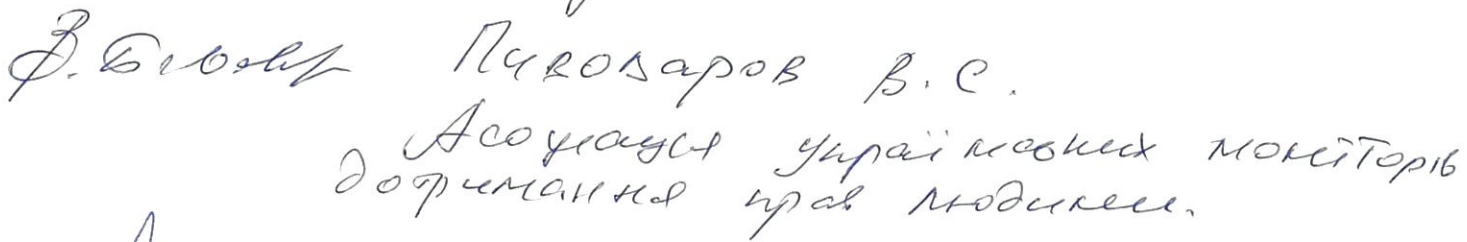 Пивоваров В. С.
Асоціація українських моніторів
дотримання прав людини.